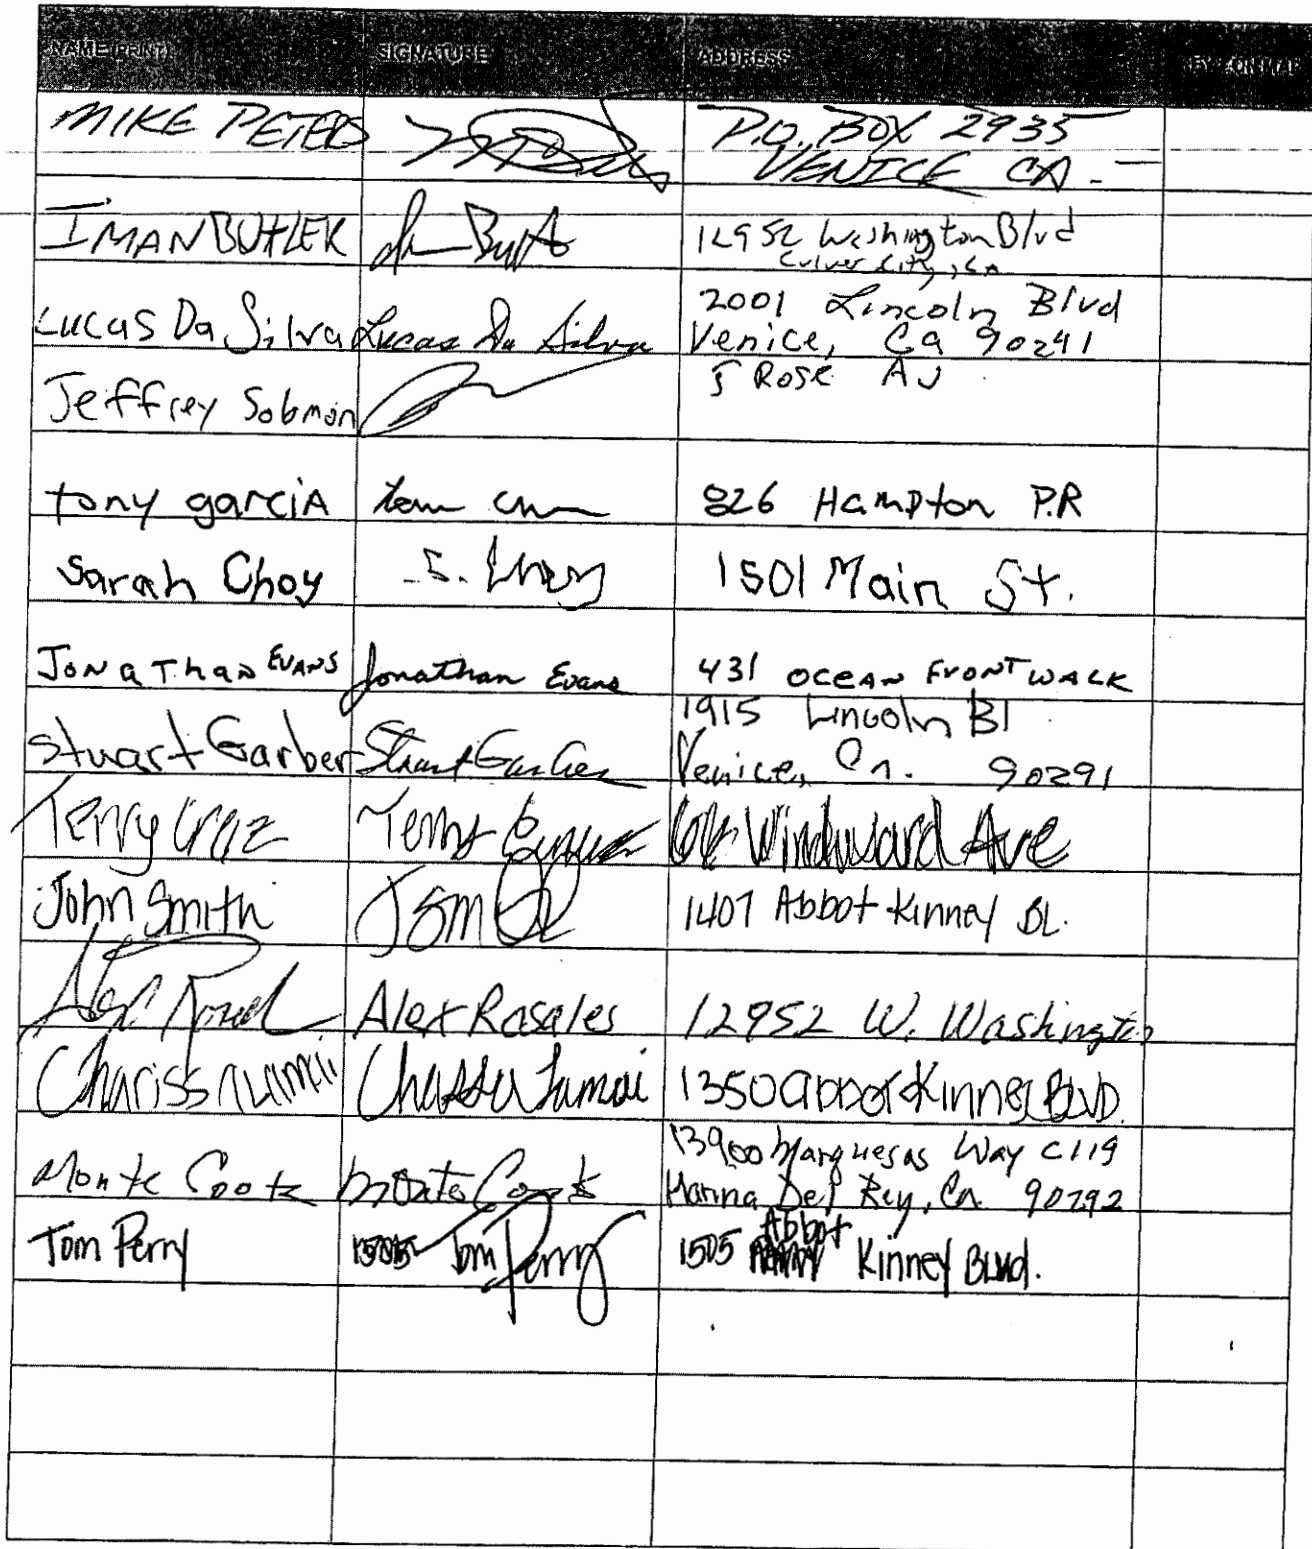 NAME (PRINT) SIGNATURE ADDRESS KEY # ON MAP
MIKE PETERS P.O. BOX 2935
VENICE CA.
IMAN BUTLER 12952 Washington Blvd
Culver City, CA
LUCAS Da Silva Lucas Da Silva 2001 Lincoln Blvd
Venice, Ca 90291
Jeffrey Solomon 5 ROSE AV
tony garciA 826 HAMpton
Sarah Choy S. Choy 1501 Main St.
JONaThaN EVANS Jonathan Evans 431 OCEAN FRONT WALK
Stuart Garber Stuart Garber 1915 Lincoln Bl
Venice, Ca. 90291
Terry Cruz Terry Windward Ave
John Smith 1407 Abbot Kinney BL.
Alex Rosales 12952 W. Washington
Charissa Lamai 1350 abbot Kinney BLVD.
Monte Cook Monte Cook 13900 Marquesas Way C119
Marina Del Rey, Ca. 90292
Tom Perry 1505 Tom Perry 1505 Abbot Kinney BLvd.